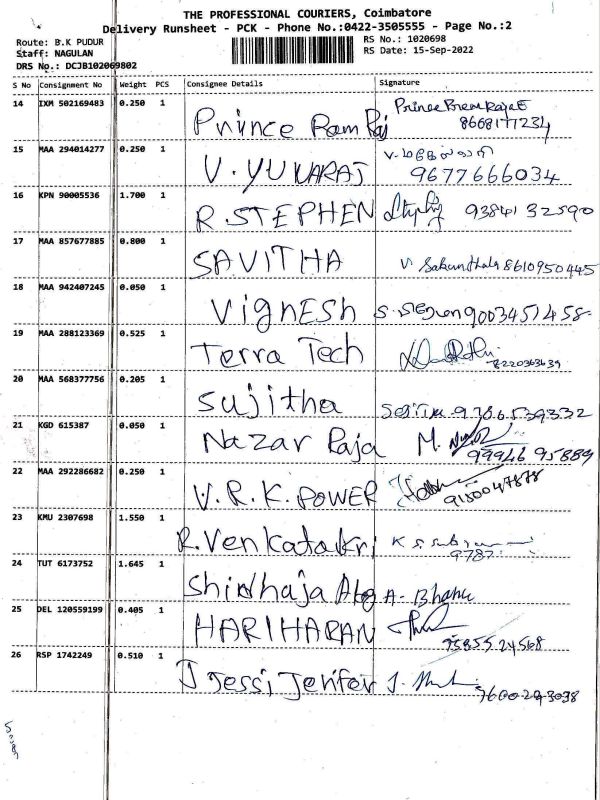 THE PROFESSIONAL COURIERS, Coimbatore
Delivery Runsheet - PCK - Phone No.:0422-3505555 - Page No.:2
Route: B.K PUDUR
RS No.: 1020698
Staff: NAGULAN
RS Date: 15-Sep-2022
DRS No.: DCJB102069802
S No Consignment No Weight PCS Consignee Details Signature
14 IXM 502169483 0.250 1 Prince Ram Raj 8668177234
15 MAA 294014277 0.250 1 V. YUVARAJ 9677666034
16 KPN 90005536 1.700 1 R. STEPHEN 9384132590
17 MAA 857677885 0.800 1 SAVITHA V. Sakunthala 8610950445
18 MAA 942407245 0.050 1 VignESh 9003451458
19 MAA 288123369 0.525 1 Terra Tech 8220363639
20 MAA 568377756 0.205 1 Sujitha
21 KGD 615387 0.050 1 Nazar Raja M. 99946 95889
22 MAA 292286682 0.250 1 V.R.K. POWER
23 KMU 2307698 1.550 1 9787
24 TUT 6173752 1.645 1 A. Bhanu
25 DEL 120559199 0.405 1 HARIHARAN 95855 24568
26 RSP 1742249 0.510 1 J Jessi Jenifer J.